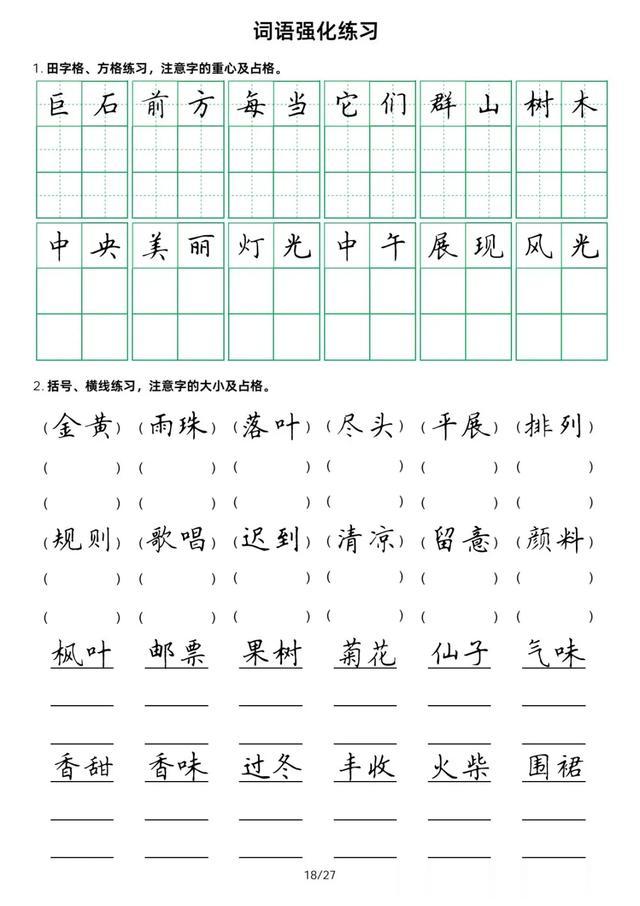 词语强化练习
1. 田字格、方格练习，注意字的重心及占格。
巨石 前方 每当 它们 群山 树木
中央 美丽 灯光 中午 展现 风光
2. 括号、横线练习，注意字的大小及占格。
(金黄) (雨珠) (落叶) (尽头) (平展) (排列)
( ) ( ) ( ) ( ) ( ) ( )
( ) ( ) ( ) ( ) ( ) ( )
(规则) (歌唱) (迟到) (清凉) (留意) (颜料)
( ) ( ) ( ) ( ) ( ) ( )
( ) ( ) ( ) ( ) ( ) ( )
枫叶 邮票 果树 菊花 仙子 气味
香甜 香味 过冬 丰收 火柴 围裙
18/27